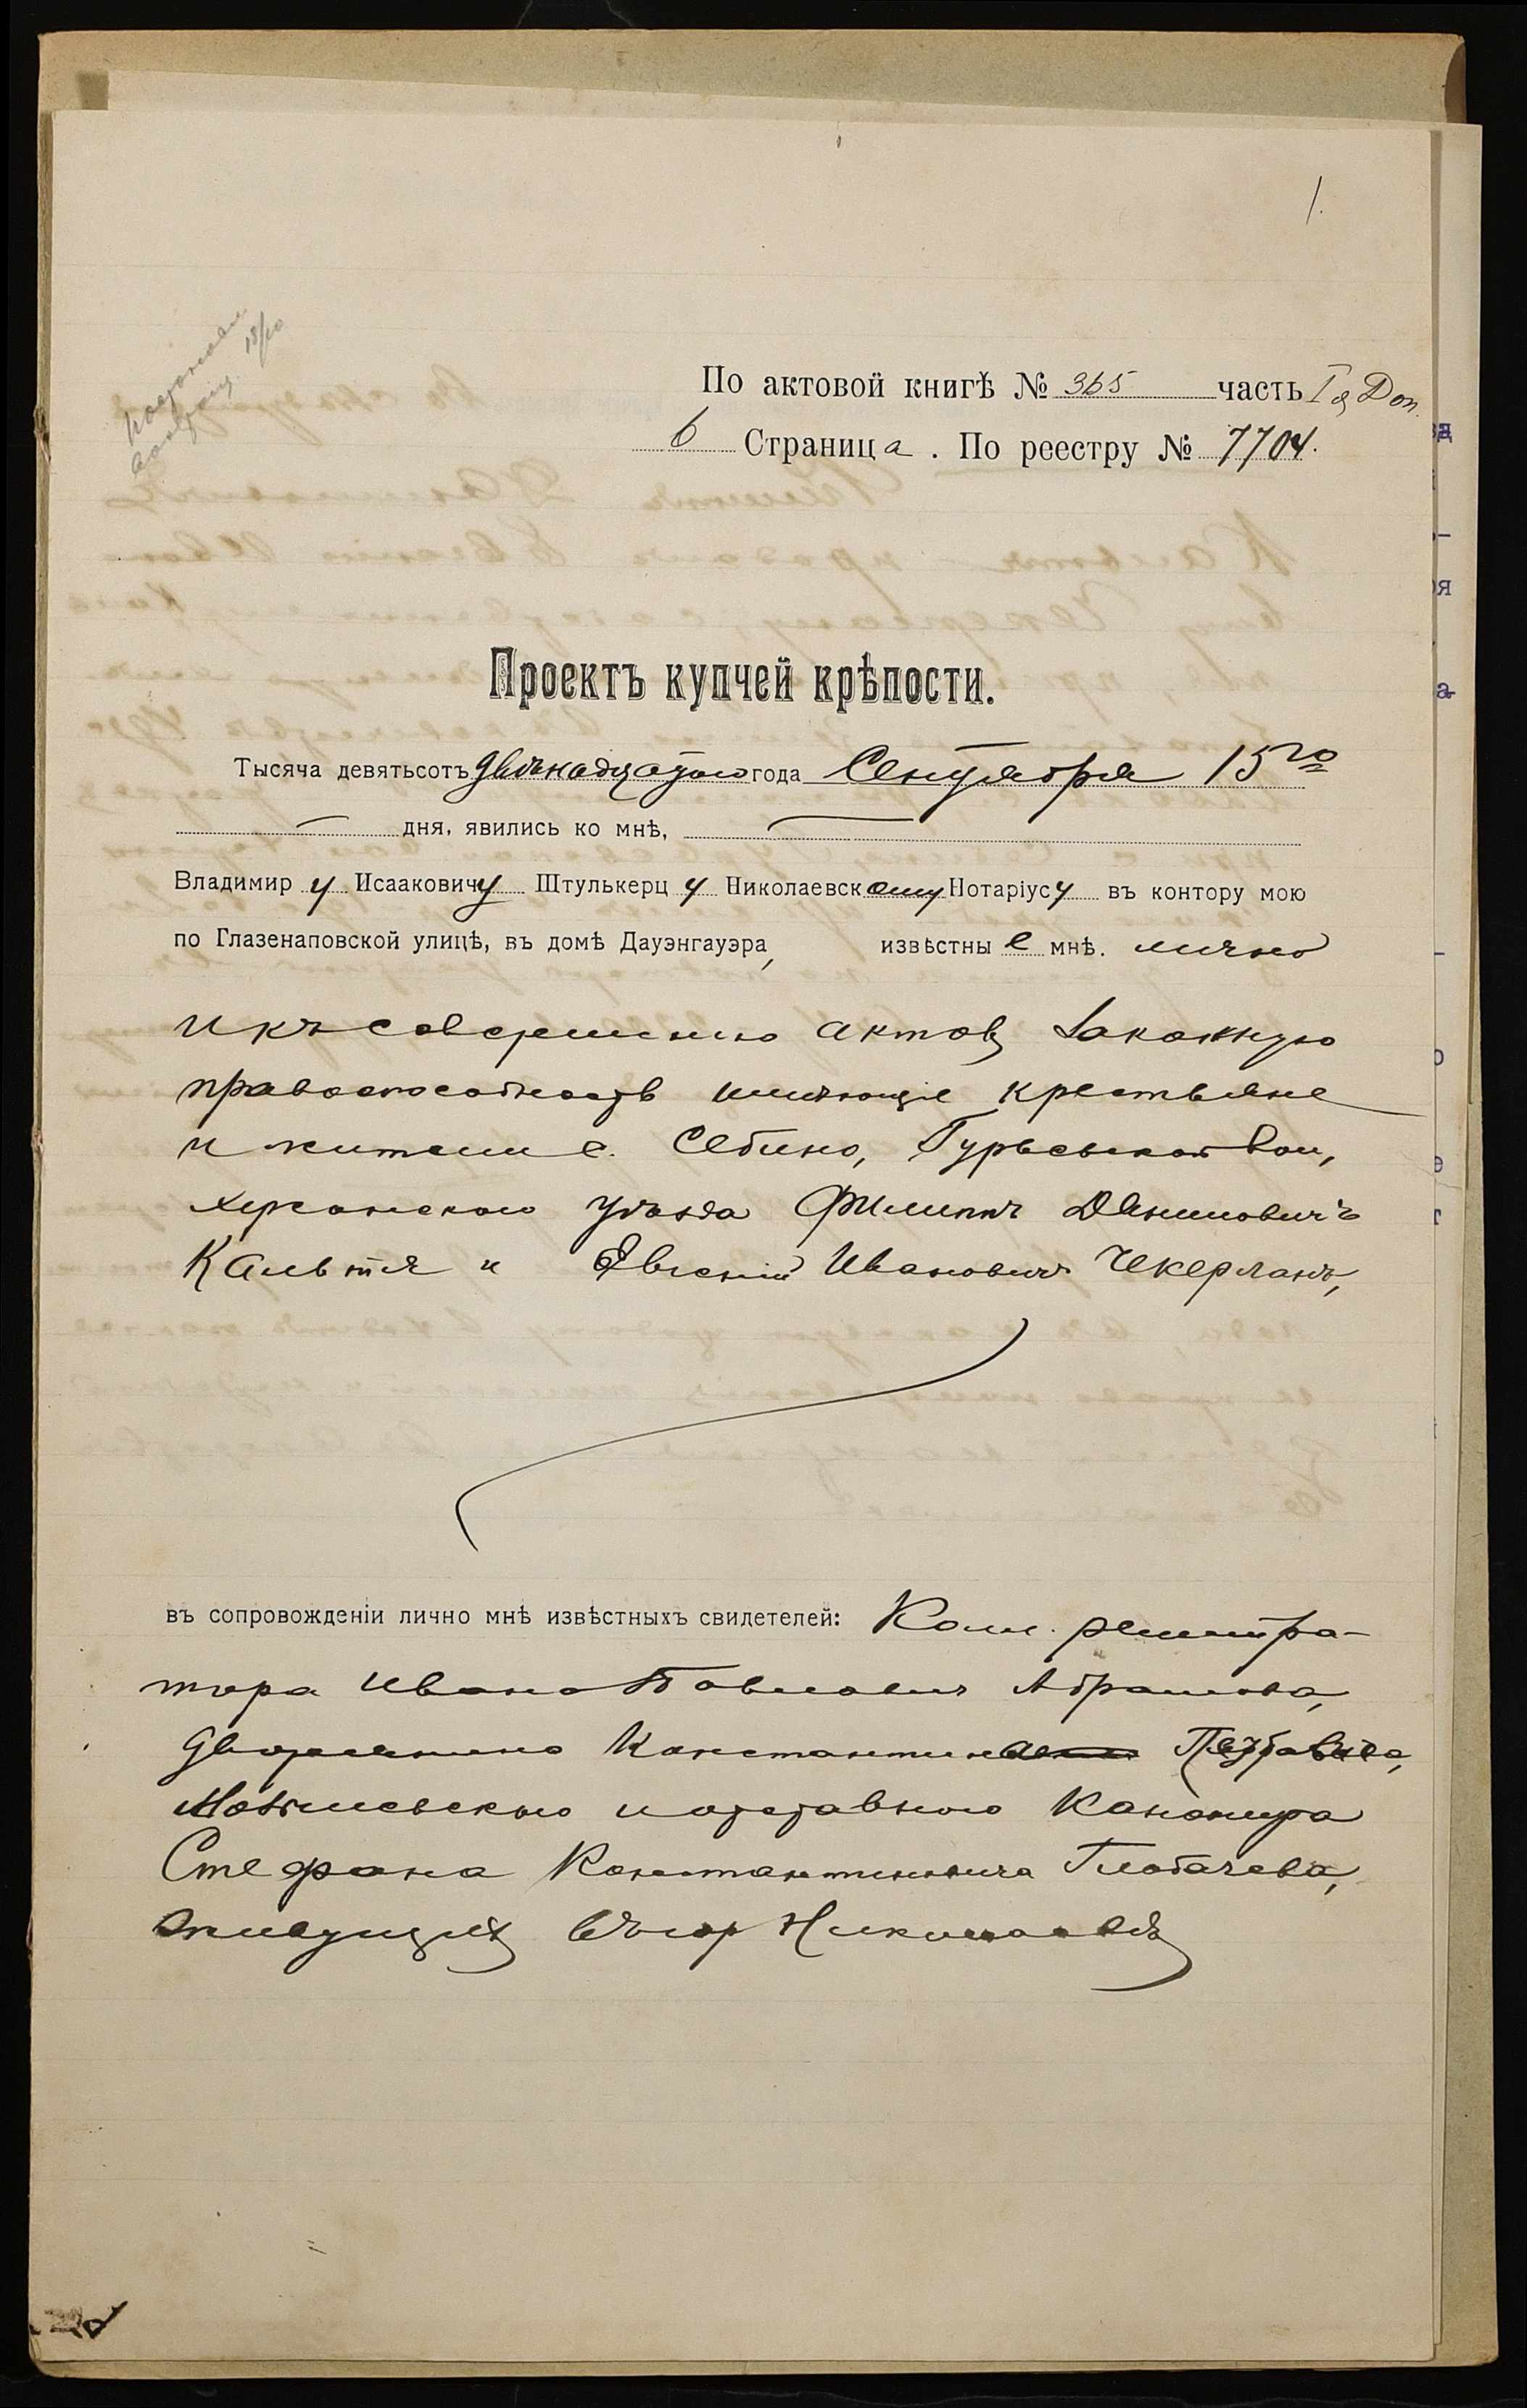 1.
По актовой книгѣ № 365 часть I я Доп.
6 Страница. По реестру № 7704.
Проектъ купчей крѣпости.
Тысяча девятьсотъ двѣнадцатого года Сентября 15го
дня, явились ко мнѣ,
Владимиру Исааковичу Штулькерцу Николаевскому Нотаріусу въ контору мою
по Глазенаповской улицѣ, въ домѣ Дауэнгауэра, извѣстные мнѣ. лично
и къ совершенію актовъ законную
правоспособность имѣющіе крестьяне
и жители с. Себино, Гурьевской вол,
Херсонскаго уѣзда Филиппъ Даниловичъ
Кальтя и Евгеній Ивановичъ Чекерланъ,
въ сопровожденіи лично мнѣ извѣстныхъ свидетелей: Колл. регистра-
тора Ивана Павловича Абрамова,
дворянина Константина
и отставного Канонира
Стефана Константиновича Глобачева,
живущихъ въ гор Николаевѣ